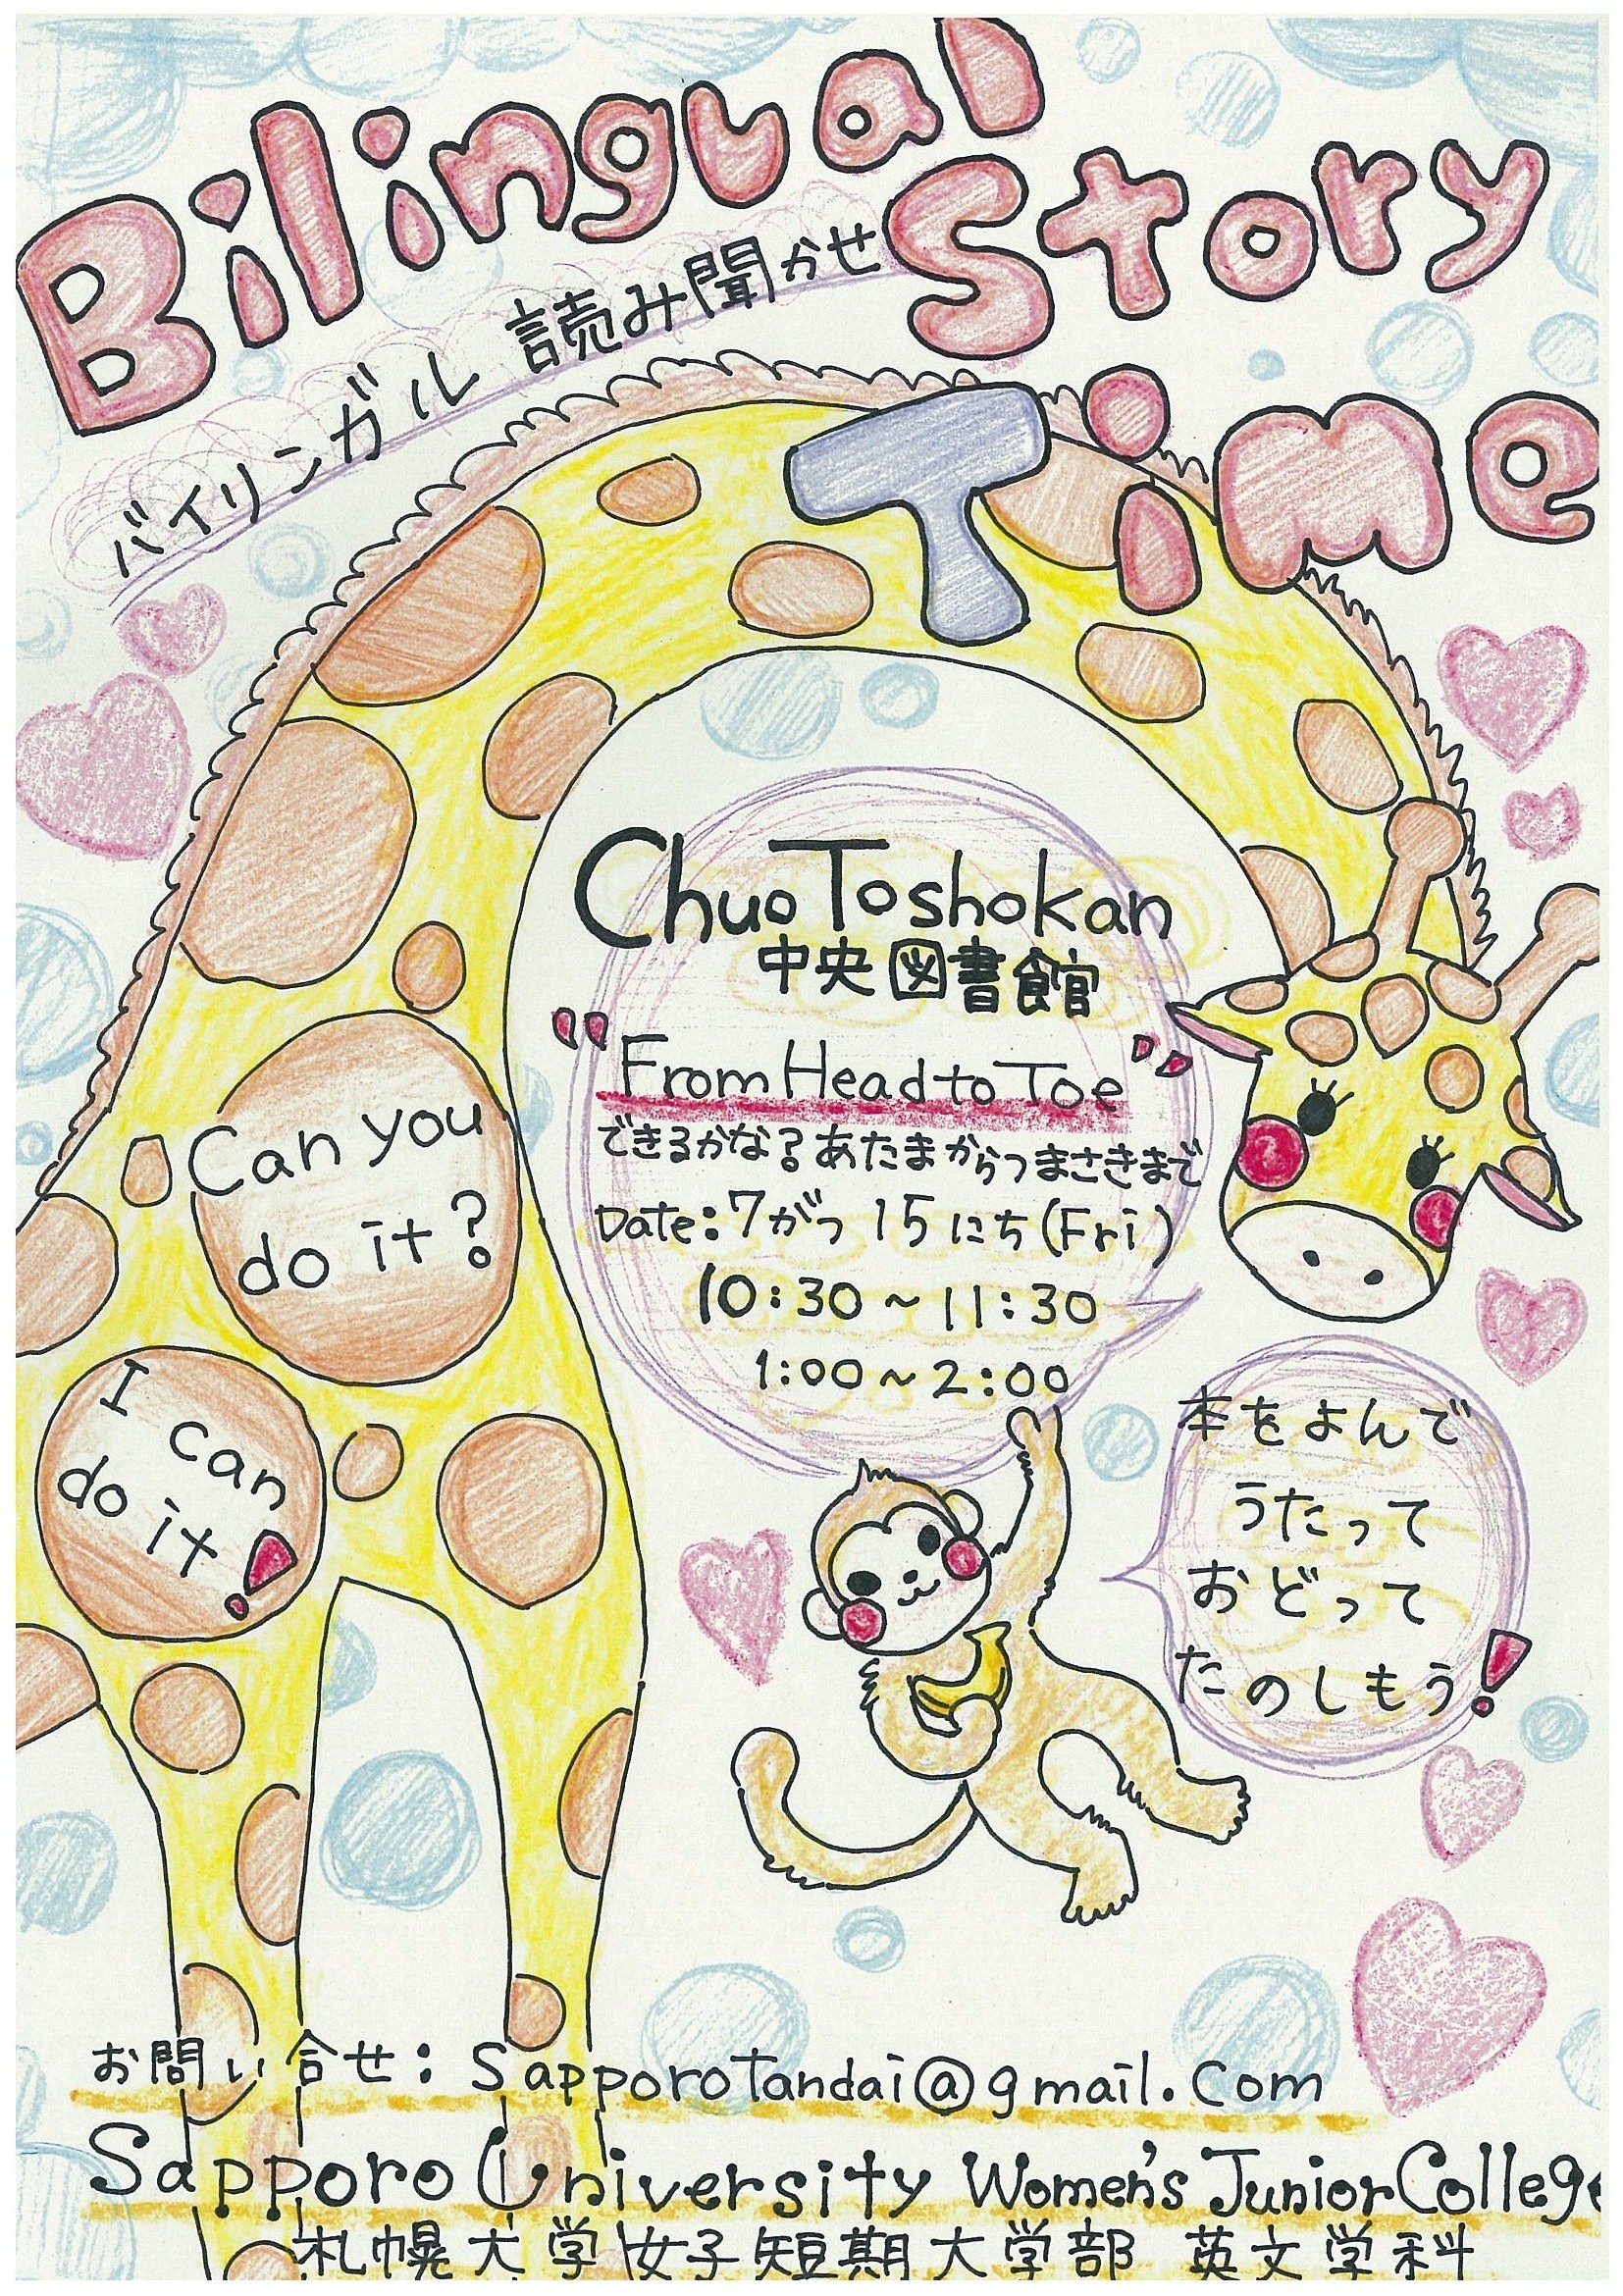 Bilingual
Story
Time
バイリンガル 読み聞かせ
Chuo Toshokan
中央図書館
"From Head to Toe"
できるかな?あたまからつまさきまで
Date:7がつ 15にち(Fri)
10:30~11:30
1:00~2:00
Can you
do it?
I can
do it!
本をよんで
うたって
おどって
たのしもう!
お問い合せ: Sapporotandai@gmail.com
Sapporo University Women's Junior College
札幌大学女子短期大学部 英文学科